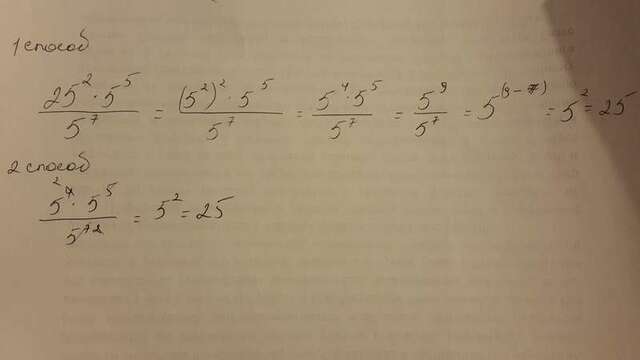 1 способ
25² · 5⁵ / 5⁷ = (5²)² · 5⁵ / 5⁷ = 5⁴ · 5⁵ / 5⁷ = 5⁹ / 5⁷ = 5⁽⁹⁻⁷⁾ = 5² = 25
2 способ
5² · 5⁵ / 5 = 5² = 25